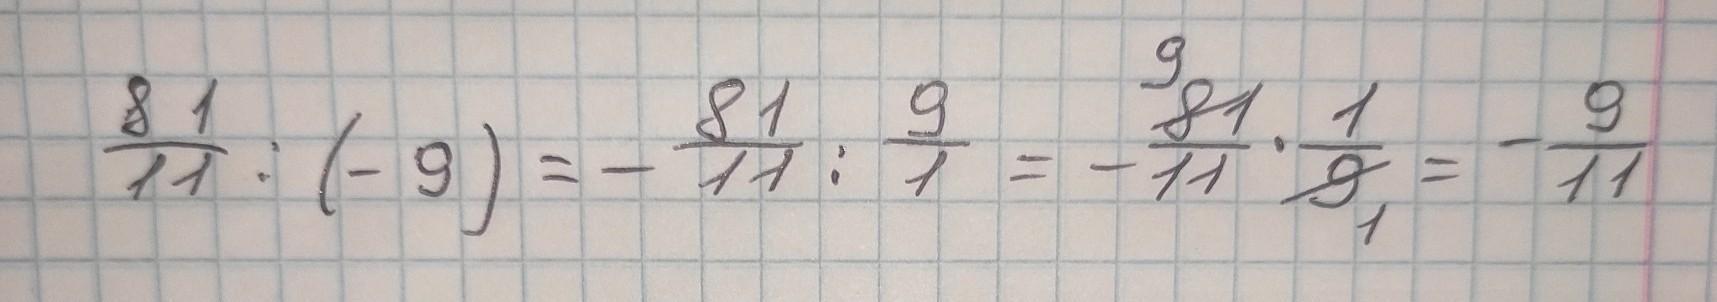 81/11 : (-9) = - 81/11 : 9/1 = - 81/11 9 · 1/9 1 = - 9/11